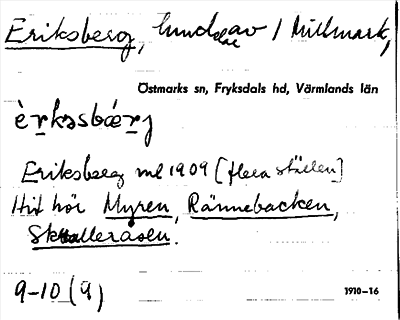 Eriksberg, hund.del av 1 Millmark,
Östmarks sn, Fryksdals hd, Värmlands län
èrksbærj
Eriksberg ml 1909 [flera ställen]
Hit hör Myren, Rännebacken,
Skalleråsen.
9-10 (9)
1910-16